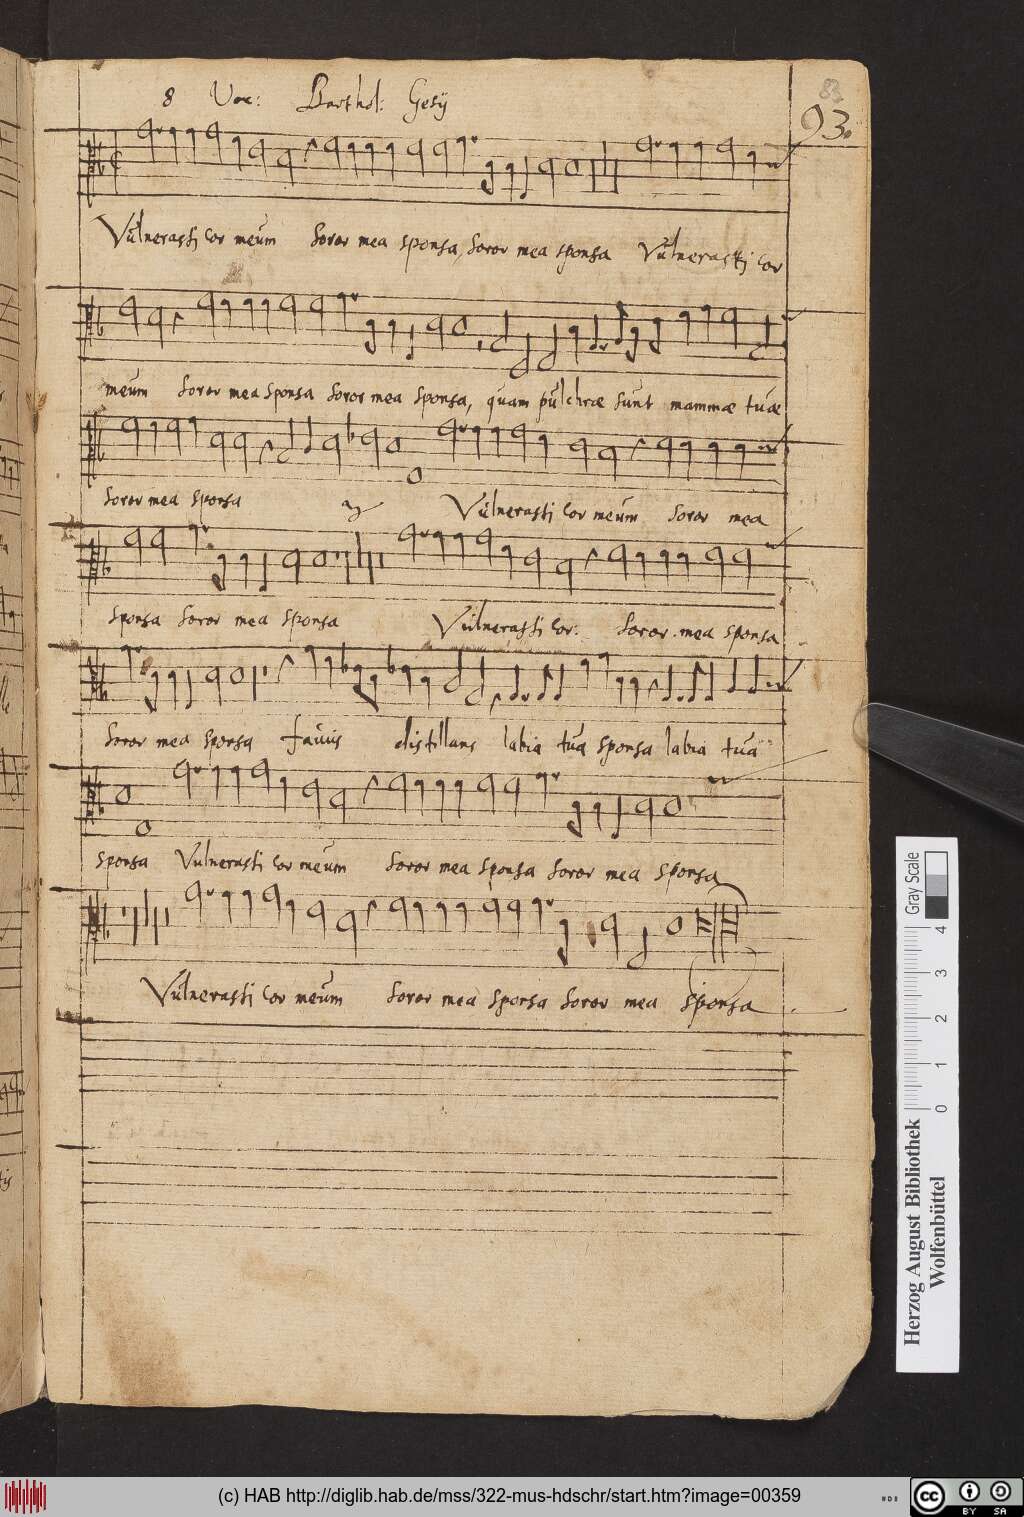 8 Voc: Barthol: Gesÿ
83
93.
Vulnerasti Cor meum Soror mea sponsa, Soror mea sponsa Vulnerasti Cor
meum Soror mea sponsa Soror mea sponsa, quam pulchræ sunt mammæ tuæ
Soror mea sponsa Vulnerasti Cor meum Soror mea
sponsa Soror mea sponsa Vulnerasti Cor: Soror mea sponsa
Soror mea sponsa favus distillans labia tua sponsa labia tua
sponsa Vulnerasti Cor meum Soror mea sponsa Soror mea sponsa
Vulnerasti Cor meum Soror mea sponsa Soror mea sponsa
Gray Scale
4
3
2
1
0
Herzog August Bibliothek
Wolfenbüttel
(c) HAB http://diglib.hab.de/mss/322-mus-hdschr/start.htm?image=00359
cc BY SA